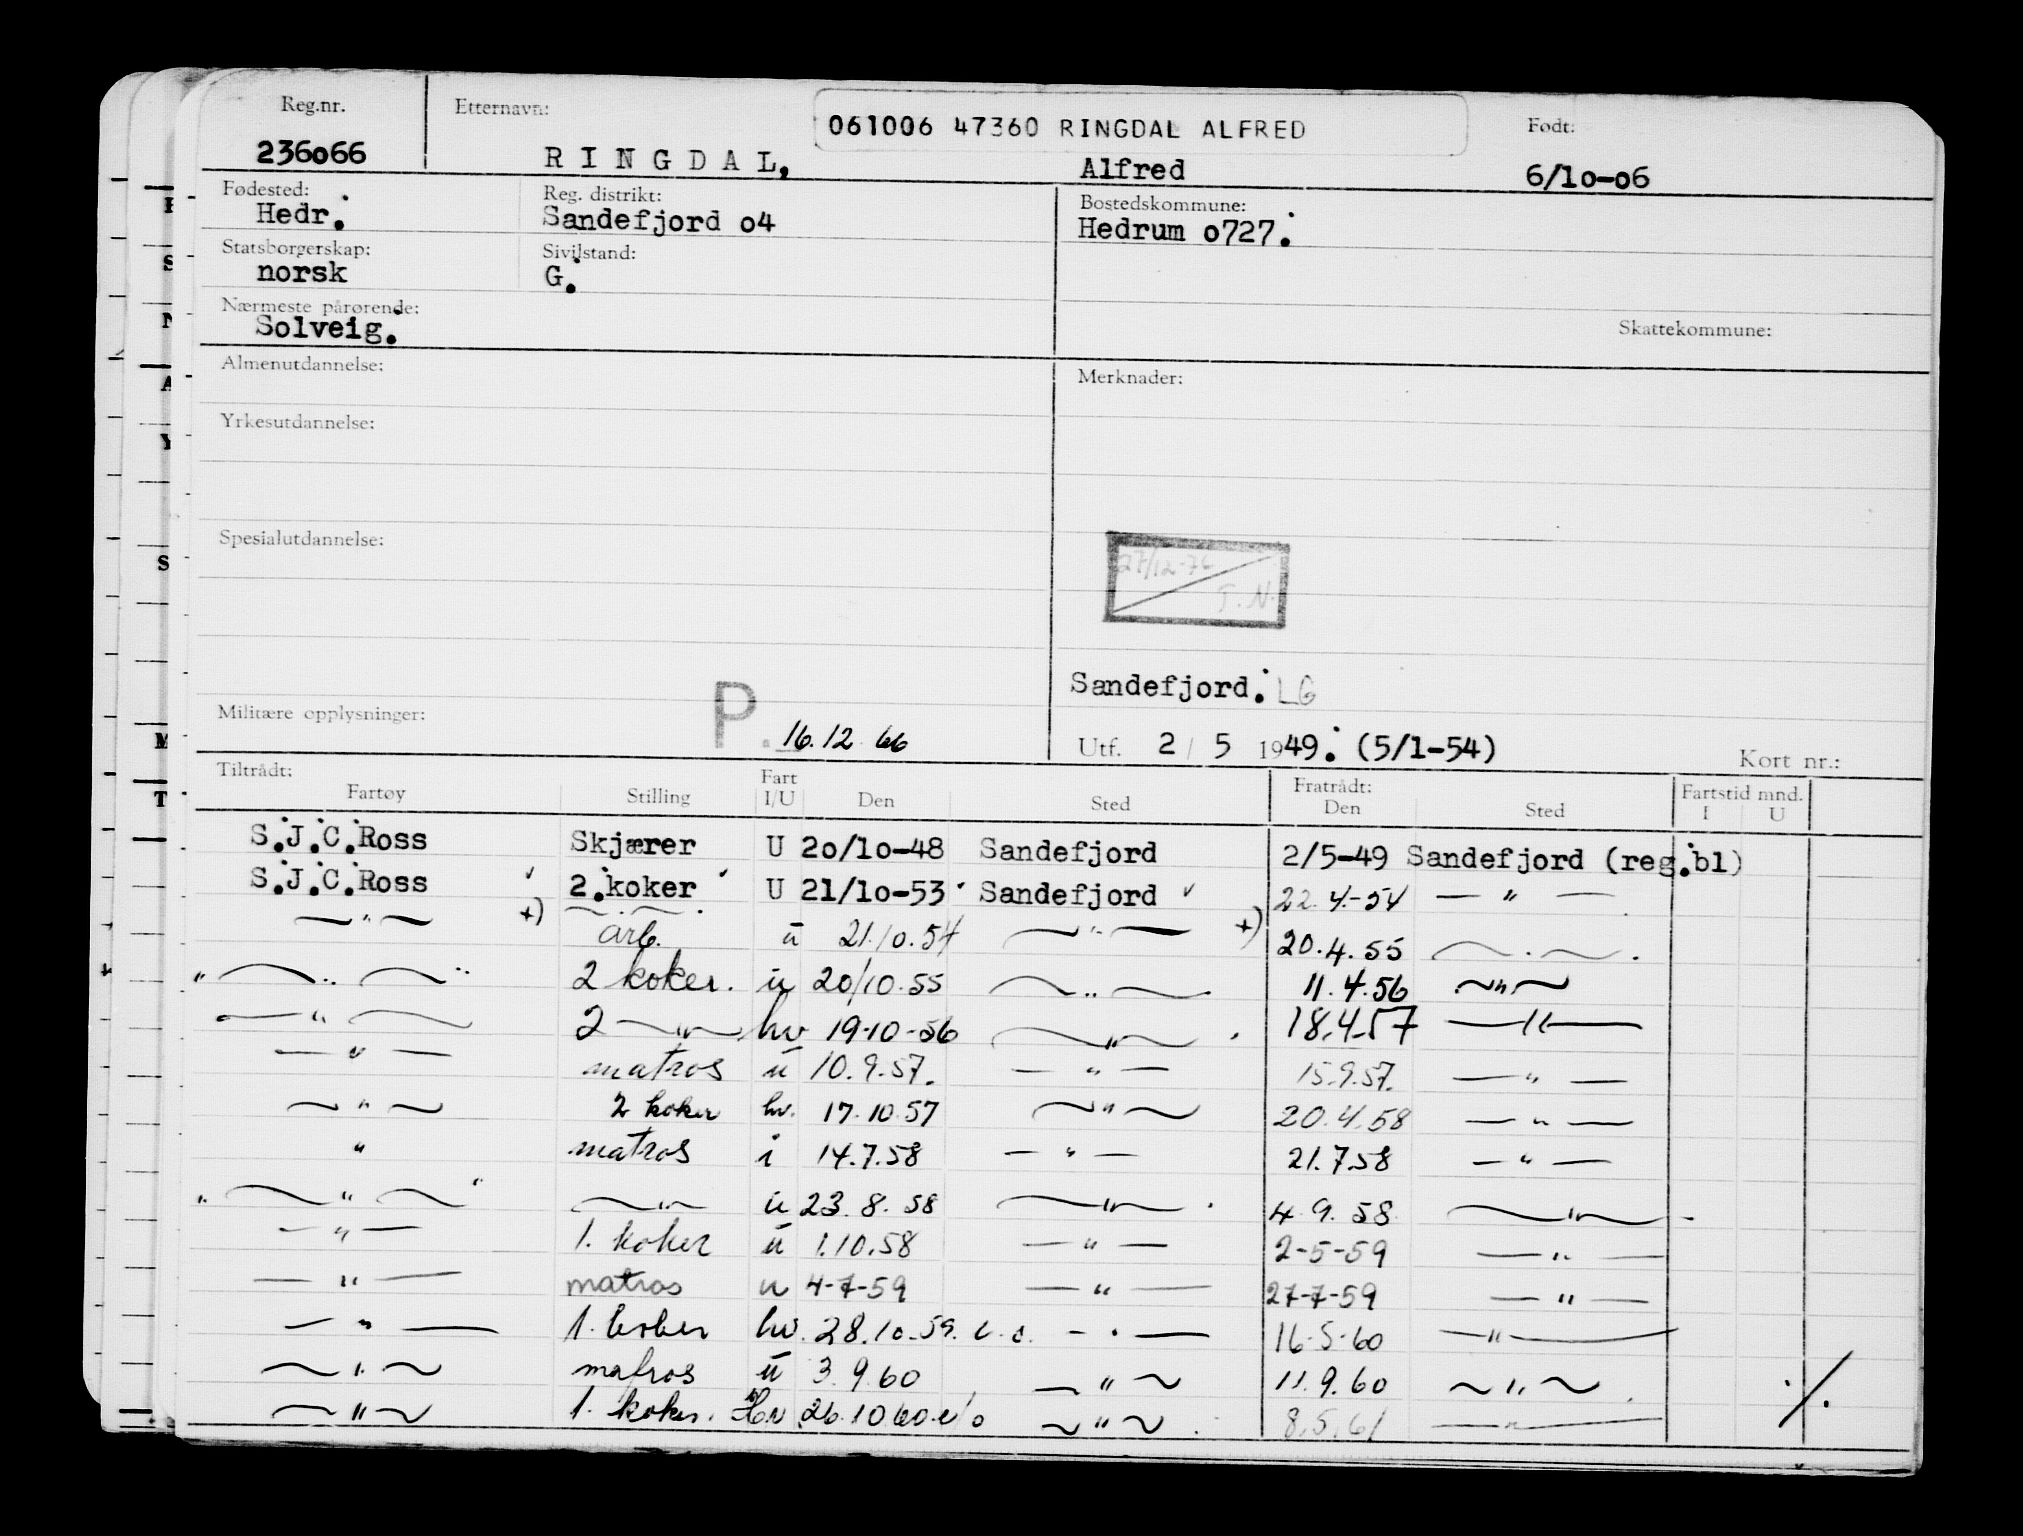 Reg.nr. Etternavn: 061006 47360 RINGDAL ALFRED Født:
236o66 RINGDAL, Alfred 6/1o-o6
Fødested: Reg. distrikt: Bostedskommune:
Hedr. Sandefjord o4 Hedrum o727.
Statsborgerskap: Sivilstand:
norsk G.
Nærmeste pårørende: Skattekommune:
Solveig.
Almenutdannelse: Merknader:
Yrkesutdannelse:
Spesialutdannelse:
27/12-76
T.N.
Sandefjord. LG
Militære opplysninger: P. 16.12 66 Utf. 2 / 5 1949. (5/1-54) Kort nr.:
Tiltrådt: Fart Fratrådt: Fartstid mnd.
Fartøy Stilling I/U Den Sted Den Sted I U
S.J.C.Ross Skjærer U 2o/1o-48 Sandefjord 2/5-49 Sandefjord (reg.bl)
S.J.C.Ross 2.koker U 21/1o-53 Sandefjord 22.4.-54 — " —
— " — +) arb. u 21.10.54 — " — +) 20.4.55 — " —
— " — 2 koker. u 20/10.55 — " — 11.4.56 — " —
— " — 2 — " — hv 19-10-56 — " — 18.4.57 — " —
— " — matros u 10.9.57. — " — 15.9.57. — " —
— " — 2 koker hv. 17.10.57 — " — 20.4.58 — " —
" matros i 14.7.58 — " — 21.7.58 — " —
— " — — " — u 23.8.58 — " — 4.9.58 — " —
— " — 1. koker u 1.10.58 — " — 2-5-59 — " —
— " — matros u 4-7-59 — " — 27-7-59 — " —
— " — 1. koker hv. 28.10.59. — " — 16-5-60 — " —
— " — matros u 3.9.60 — " — 11.9.60 — " —
— " — 1. koker. Hv 26.10.60. — " — 8.5.61 — " — ./.